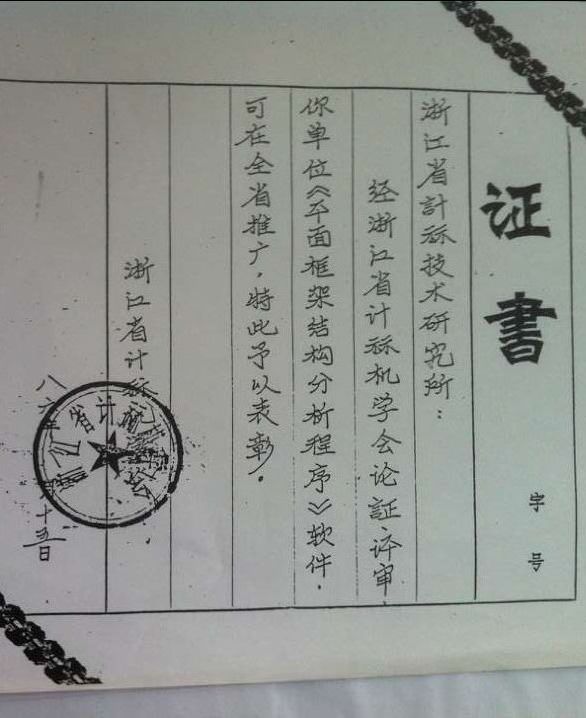 证书
字号
浙江省計祘技术研究所：
经浙江省计祘机学会论証评审，
你单位《平面框架结构分析程序》软件，
可在全省推广，特此予以表彰。
浙江省计祘机学会
八六年 十五日